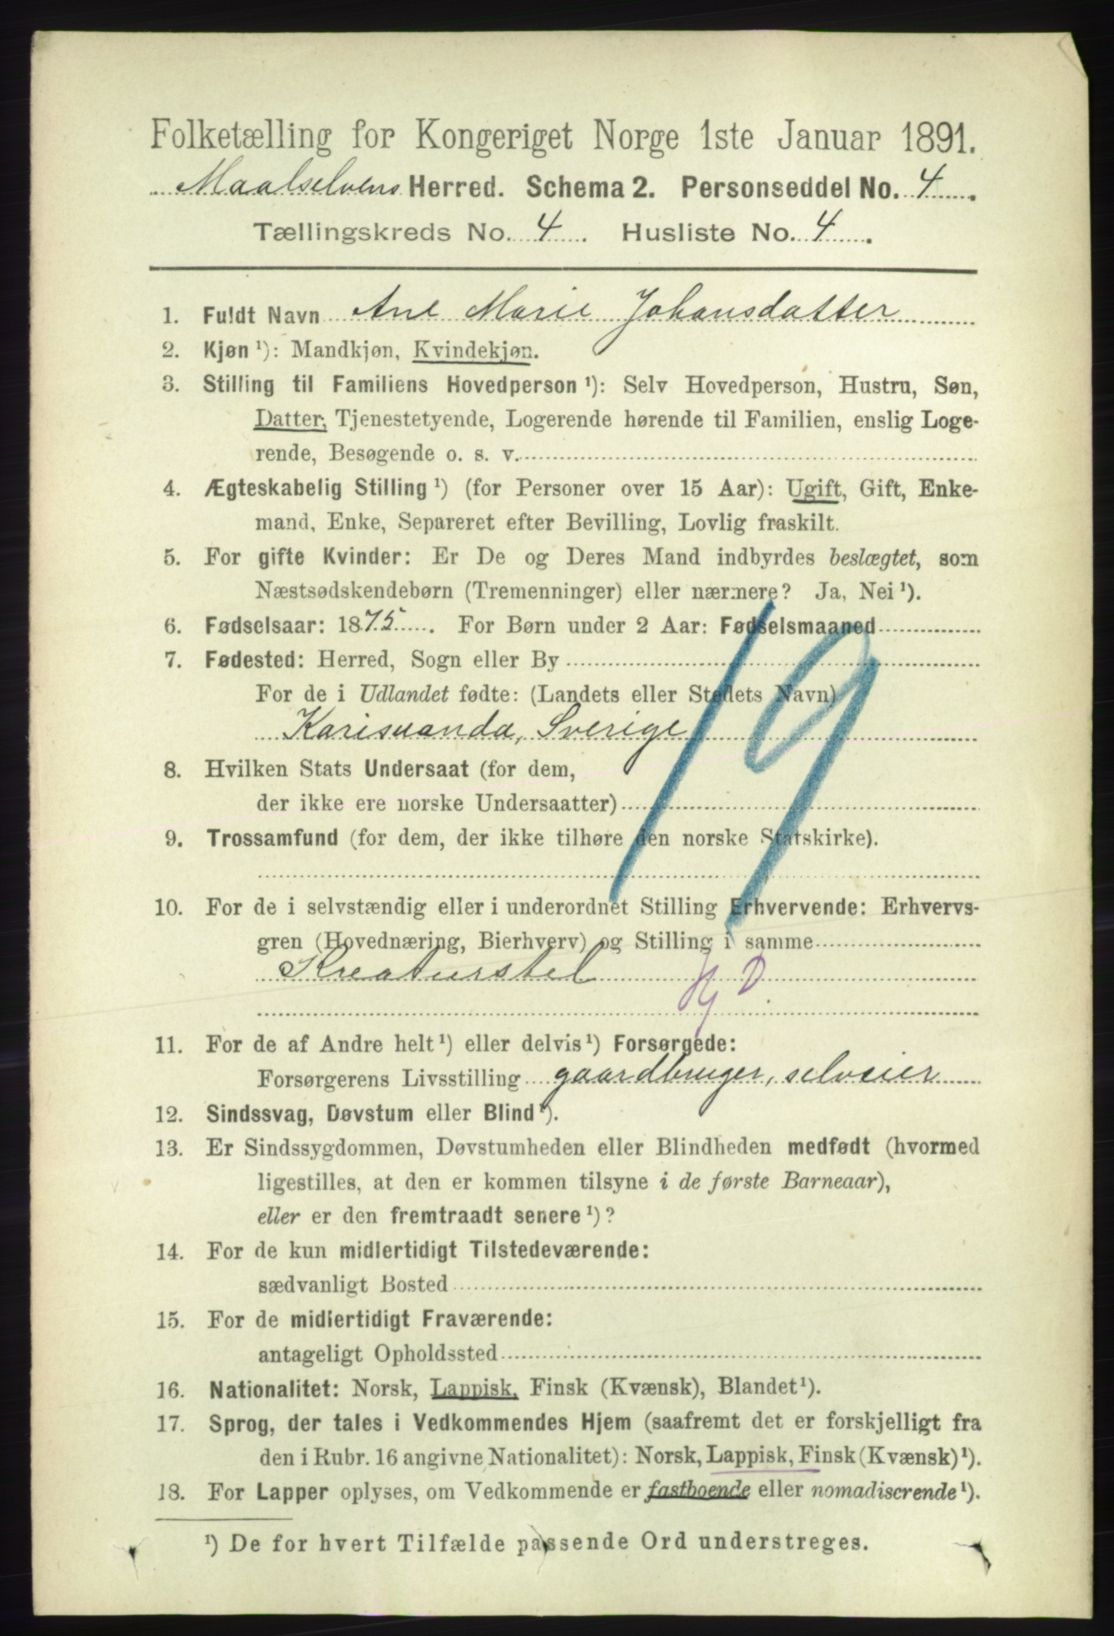 Folketælling for Kongeriget Norge 1ste Januar 1891.
Maalselvens Herred. Schema 2. Personseddel No. 4.
Tællingskreds No. 4. Husliste No. 4.
1. Fuldt Navn Ane Marie Johansdatter
2. Kjøn ¹): Mandkjøn, Kvindekjøn.
3. Stilling til Familiens Hovedperson ¹): Selv Hovedperson, Hustru, Søn,
Datter, Tjenestetyende, Logerende hørende til Familien, enslig Loge-
rende, Besøgende o. s. v.
4. Ægteskabelig Stilling ¹) (for Personer over 15 Aar): Ugift, Gift, Enke-
mand, Enke, Separeret efter Bevilling, Lovlig fraskilt.
5. For gifte Kvinder: Er De og Deres Mand indbyrdes beslægtet, som
Næstsødskendebørn (Tremenninger) eller nærmere? Ja, Nei ¹).
6. Fødselsaar: 1875. For Børn under 2 Aar: Fødselsmaaned
7. Fødested: Herred, Sogn eller By
For de i Udlandet fødte: (Landets eller Stedets Navn)
Karisuanda, Sverige
19
8. Hvilken Stats Undersaat (for dem,
der ikke ere norske Undersaatter)
9. Trossamfund (for dem, der ikke tilhøre den norske Statskirke).
10. For de i selvstændig eller i underordnet Stilling Erhvervende: Erhvervs-
gren (Hovednæring, Bierhverv) og Stilling i samme
Kreaturstel
11. For de af Andre helt ¹) eller delvis ¹) Forsørgede:
Forsørgerens Livsstilling gaardbruger, selveier
12. Sindssvag, Døvstum eller Blind ¹).
13. Er Sindssygdommen, Døvstumheden eller Blindheden medfødt (hvormed
ligestilles, at den er kommen tilsyne i de første Barneaar),
eller er den fremtraadt senere ¹)?
14. For de kun midlertidigt Tilstedeværende:
sædvanligt Bosted
15. For de midlertidigt Fraværende:
antageligt Opholdssted
16. Nationalitet: Norsk, Lappisk, Finsk (Kvænsk), Blandet ¹).
17. Sprog, der tales i Vedkommendes Hjem (saafremt det er forskjelligt fra
den i Rubr. 16 angivne Nationalitet): Norsk, Lappisk, Finsk (Kvænsk) ¹).
18. For Lapper oplyses, om Vedkommende er fastboende eller nomadiserende ¹).
¹) De for hvert Tilfælde passende Ord understreges.